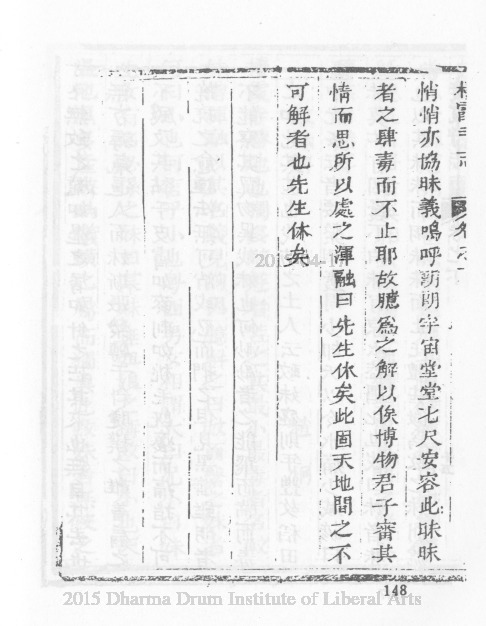 悄悄亦協昧義嗚呼朗朗宇宙堂堂七尺安容此昧昧
者之肆毒而不止耶故臆為之解以俟博物君子審其
情而思所以處之渾融曰先生休矣此固天地間之不
可解者也先生休矣
148
2015 Dharma Drum Institute of Liberal Arts